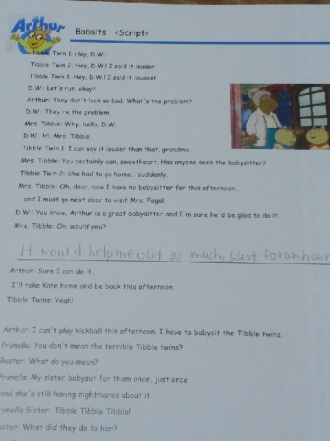 Arthur
Babsits <Script>
Tibble Twin 1: Hey, D.W.!
Tibble Twin 2: Hey, D.W.! I said it louder.
Tibble Twin 1: Hey, D.W.! I said it loudest.
D.W.: Let's run, okay?
Arthur: They don't look so bad. What's the problem?
D.W.: They're the problem.
Mrs. Tibble: Why, hello, D.W.
D.W.: Hi, Mrs. Tibble.
Tibble Twin 1: I can say it louder than that, grandma.
Mrs. Tibble: You certainly can, sweetheart. Has anyone seen the babysitter?
Tibble Twin 2: She had to go home... suddenly.
Mrs. Tibble: Oh, dear, now I have no babysitter for this afternoon...
and I must go next door to visit Mrs. Fogal.
D.W.: You know, Arthur is a great babysitter and I'm sure he'd be glad to do it.
Mrs. Tibble: Oh, would you?
It would help me out so much, just for an hour
Arthur: Sure I can do it.
I'll take Kate home and be back this afternoon.
Tibble Twins: Yeah!
Arthur: I can't play kickball this afternoon. I have to babysit the Tibble twins.
Prunella: You don't mean the terrible Tibble twins?
Buster: What do you mean?
Prunella: My sister babysat for them once, just once
and she's still having nightmares about it.
Prunella Sister: Tibble Tibble Tibble!
Buster: What did they do to her?